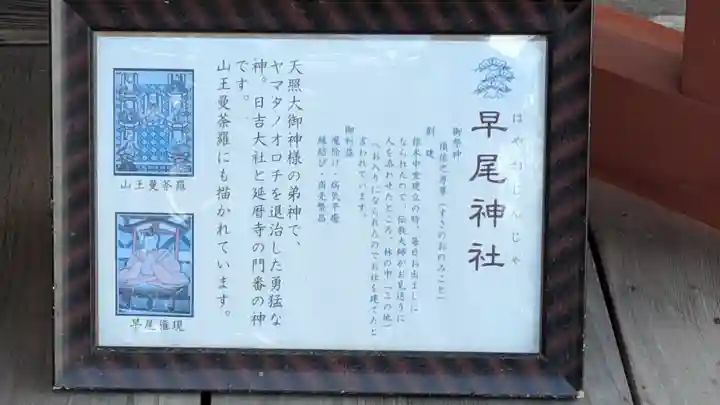 早尾神社
はやおじんじゃ
御祭神
須佐之男尊（すさのおのみこと）
創建
根本中堂建立の時、毎日お出ましに
なられたので、伝教大師がお見送りに
人を添わせたところ、林の中（この地）
へお入りになられたのでお社を建てたと
言われています。
御利益
魔除け・病気平癒
縁結び・商売繁昌
天照大御神様の弟神で、
ヤマタノオロチを退治した勇猛な
神。日吉大社と延暦寺の門番の神
です。
山王曼荼羅にも描かれています。
山王曼荼羅
早尾権現